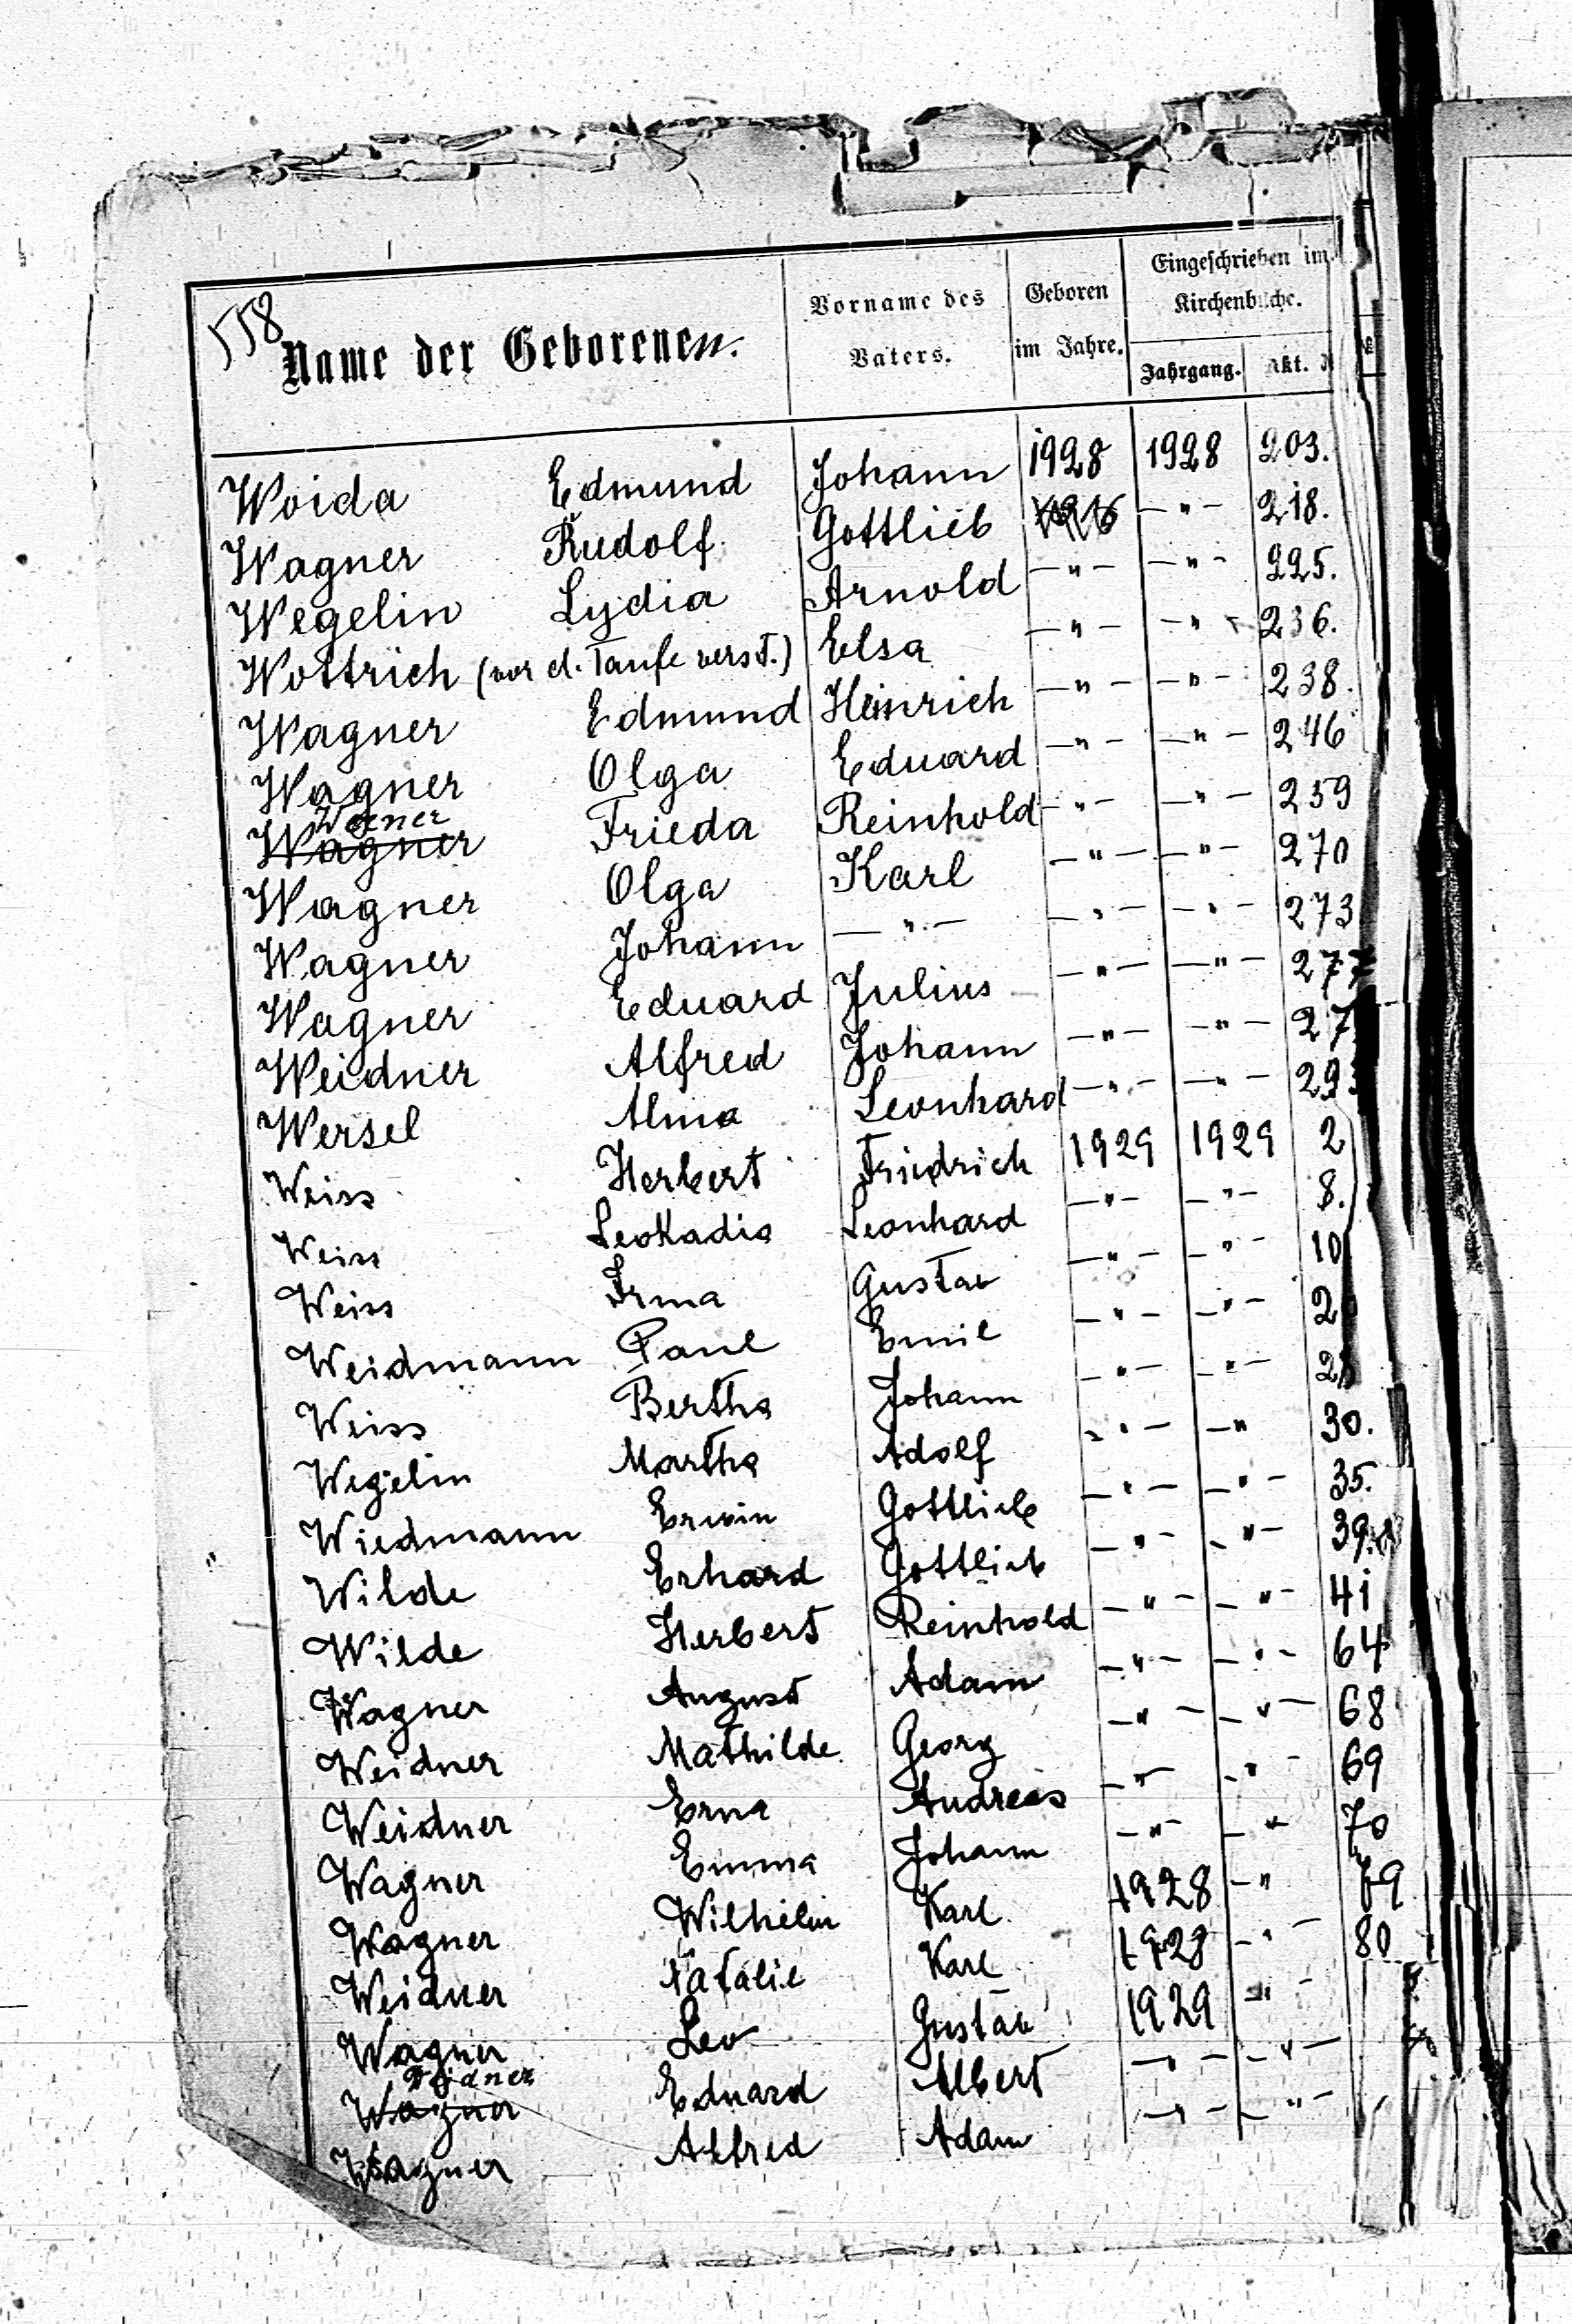 558
Name der Geborenen. Vorname des Vaters. Geboren im Jahre. Eingeschrieben im Kirchenbuche.
Jahrgang. Akt.
Woida Edmund Johann 1928 1928 203.
Wagner Rudolf Gottlieb —"— 218.
Wegelin Lydia Arnold —"— —"— 225.
Wottrich (vor d. Taufe verst.) Elsa —"— —"— 236.
Wagner Edmund Heinrich —"— —"— 238.
Wagner Olga Eduard —"— —"— 246
Wegner
Wagner Frieda Reinhold —"— —"— 259
Wagner Olga Karl —"— —"— 270
Wagner Johann —"— —"— —"— 273
Wagner Eduard Julius —"— —"— 277
Weidner Alfred Johann —"— —"— 27
Wersel Alma Leonhard —"— —"— 293
Weiss Herbert Friedrich 1929 1929 2
Weiss Leokadia Leonhard —"— —"— 8.
Weiss Irma Gustav —"— —"— 10
Weidmann Paul Emil —"— —"— 2
Weiss Bertha Johann —"— —"— 2
Wegelin Martha Adolf —"— —" 30.
Wiedmann Erwin Gottlieb —"— —"— 35.
Wilde Erhard Gottlieb —"— —"— 39.
Wilde Herbert Reinhold —"— —"— 41
Wagner August Adam —"— —"— 64
Weidner Mathilde Georg —"— —"— 68
Weidner Erna Andreas —"— —"— 69
Wagner Emma Johann —"— —"— 70
Wagner Wilhelm Karl 1928 —" 79
Weidner Natalie Karl 1928 —"— 80
Wagner Leo Gustav 1929 —"—
Weidner
Wagner Eduard Albert —"— —"—
Wagner Alfred Adam —"— —"—